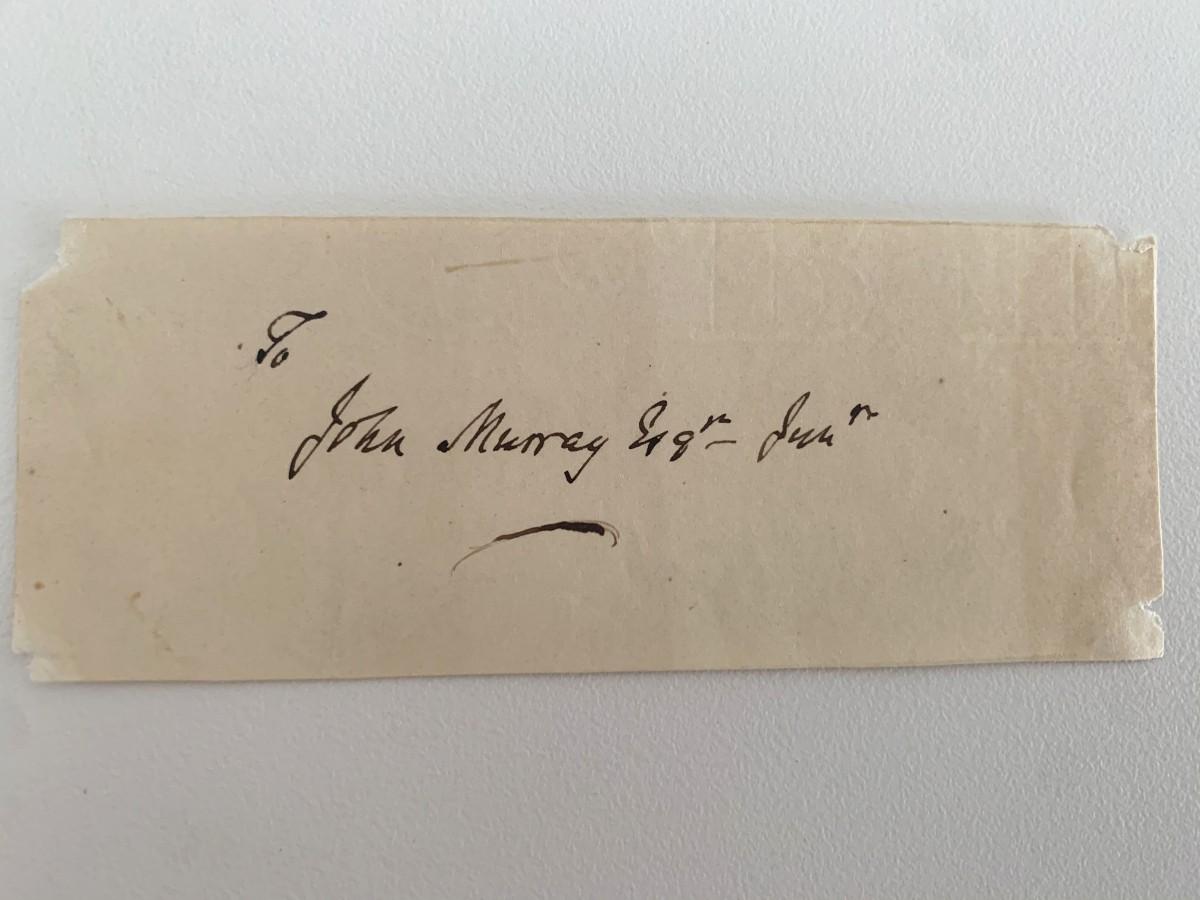 To
John Murray Esqr Junr